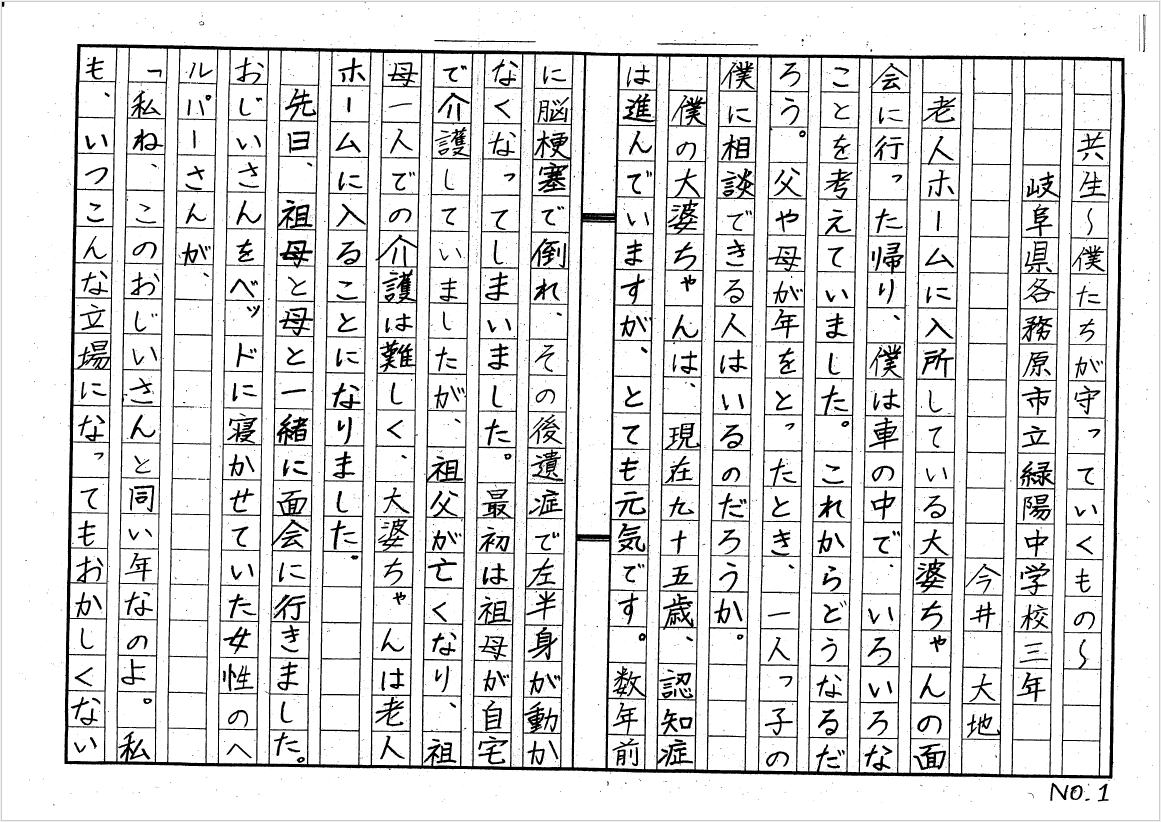 共生～僕たちが守っていくもの～
岐阜県各務原市立緑陽中学校三年
今井　大地
老人ホームに入所している大婆ちゃんの面
会に行った帰り、僕は車の中で、いろいろな
ことを考えていました。これからどうなるだ
ろう。父や母が年をとったとき、一人っ子の
僕に相談できる人はいるのだろうか。
僕の大婆ちゃんは、現在九十五歳、認知症
は進んでいますが、とても元気です。数年前
に脳梗塞で倒れ、その後遺症で左半身が動か
なくなってしまいました。最初は祖母が自宅
で介護していましたが、祖父が亡くなり、祖
母一人での介護は難しく、大婆ちゃんは老人
ホームに入ることになりました。
先日、祖母と母と一緒に面会に行きました。
おじいさんをベッドに寝かせていた女性のヘ
ルパーさんが、
「私ね、このおじいさんと同い年なのよ。私
も、いつこんな立場になってもおかしくない
NO.1